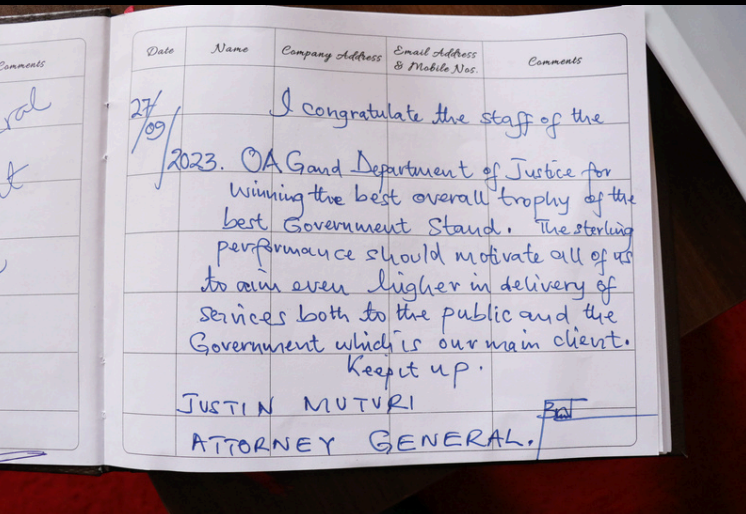 Comments
ral
t
Date Name Company Address Email Address & Mobile Nos. Comments
27/
/09/
I congratulate the staff of the
2023. OAG and Department of Justice for
winning the best overall trophy of the
best Government Stand. The sterling
performance should motivate all of us
to aim even higher in delivery of
services both to the public and the
Government which is our main client.
Keep it up.
JUSTIN MUTURI
ATTORNEY GENERAL.